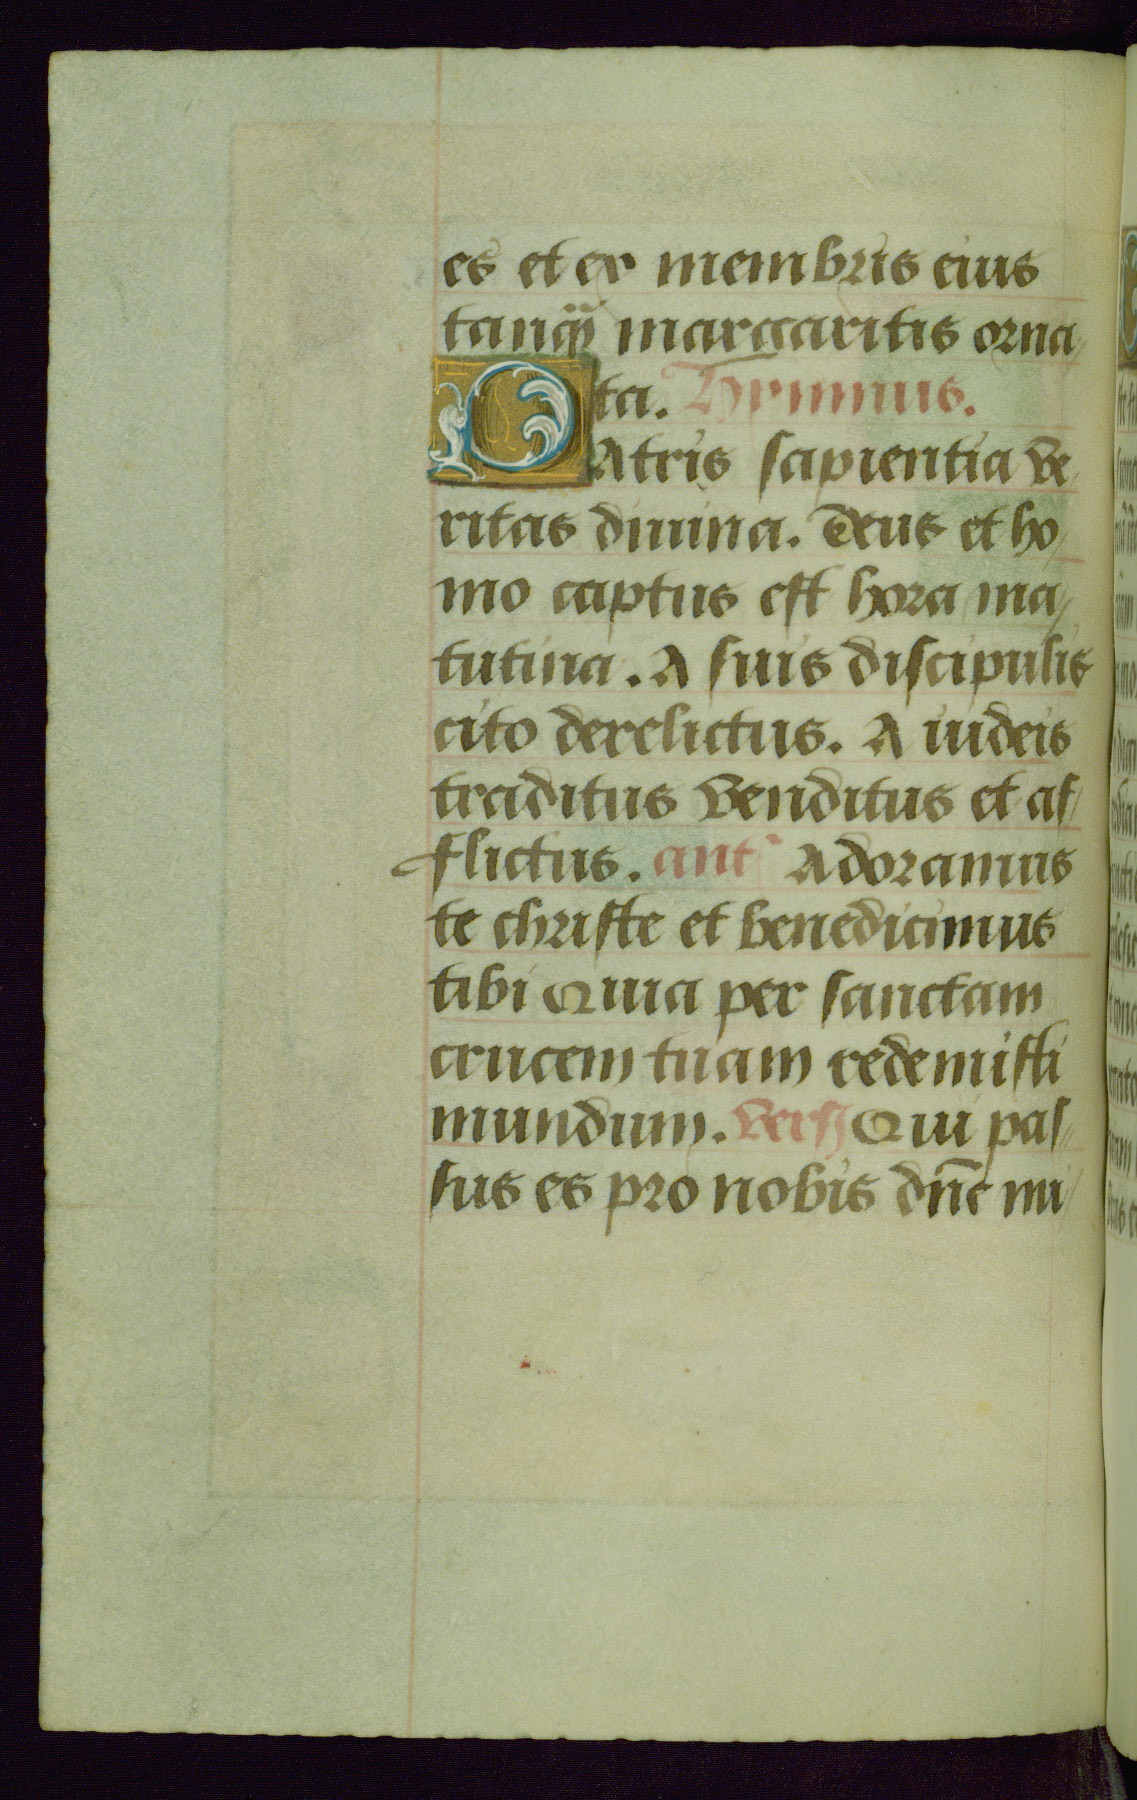 es et ex membris eius
tanq̃ʒ margaritis orna
ta. Hymnus.
PAtris sapientia ve
ritas diuina. Deus et ho
mo captus est hora ma
tutina. A suis discipulis
cito derelictus. A iudeis
traditus venditus et af
flictus. ant Adoramus
te christe et benedicimus
tibi Quia per sanctam
crucem tuam redemisti
mundum. vers Qui pas
sus es pro nobis dn̄e mi